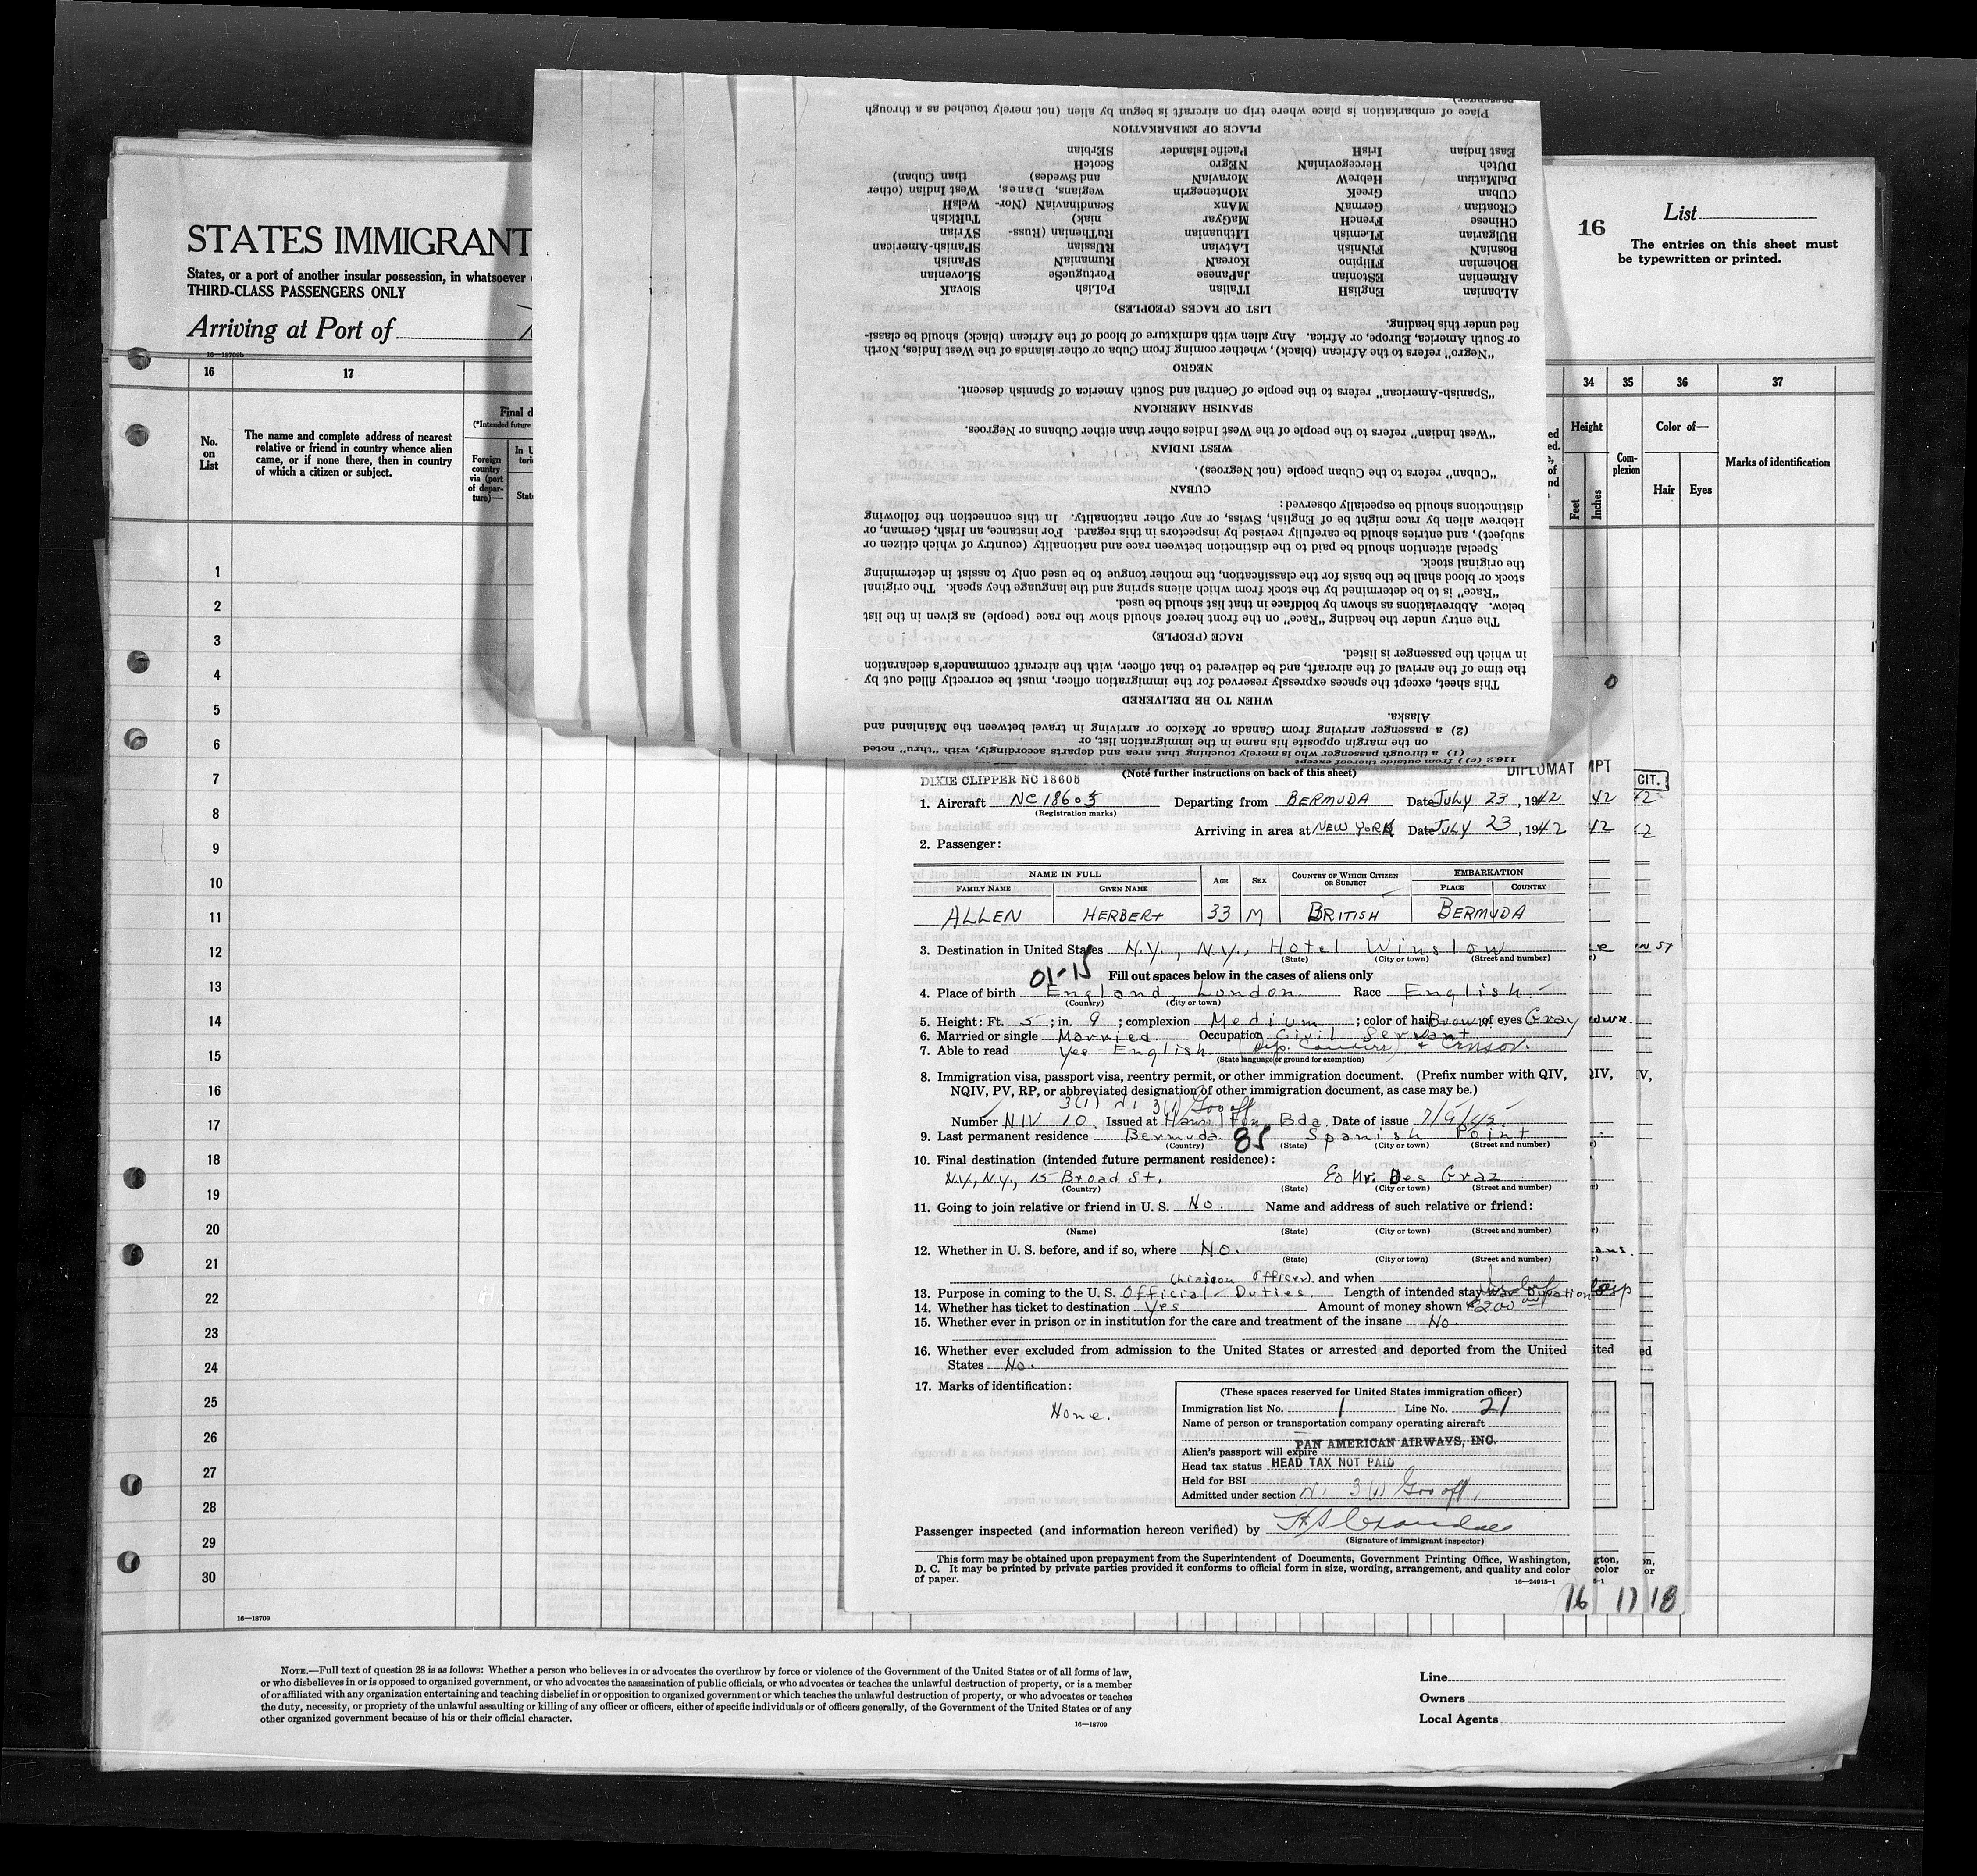 STATES IMMIGRANT
States, or a port of another insular possession, in whatsoever
THIRD-CLASS PASSENGERS ONLY
Arriving at Port of
16—18709b
16
List
The entries on this sheet must
be typewritten or printed.
16 17
No.
on
List
The name and complete address of nearest
relative or friend in country whence alien
came, or if none there, then in country
of which a citizen or subject.
Final d
(*Intended future
Foreign
country
via (port
of depar-
ture)—
In U
tori
State
34 35 36 37
Height
Feet
Inches
Com-
plexion
Color of—
Hair Eyes
Marks of identification
1
2
3
4
5
6
7
8
9
10
11
12
13
14
15
16
17
18
19
20
21
22
23
24
25
26
27
28
29
30
16—18709
116.2 (c)) from outside thereof except
(1) a through passenger who is merely touching that area and departs accordingly, with "thru" noted
on the margin opposite his name in the immigration list, or
(2) a passenger arriving from Canada or Mexico or arriving in travel between the Mainland and
Alaska.
WHEN TO BE DELIVERED
This sheet, except the spaces expressly reserved for the immigration officer, must be correctly filled out by
the time of the arrival of the aircraft, and be delivered to that officer, with the aircraft commander's declaration
in which the passenger is listed.
RACE (PEOPLE)
The entry under the heading "Race" on the front hereof should show the race (people) as given in the list
below. Abbreviations as shown by boldface in that list should be used.
"Race" is to be determined by the stock from which aliens spring and the language they speak. The original
stock or blood shall be the basis for the classification, the mother tongue to be used only to assist in determining
the original stock.
Special attention should be paid to the distinction between race and nationality (country of which citizen or
subject), and entries should be carefully revised by inspectors in this regard. For instance, an Irish, German, or
Hebrew alien by race might be of English, Swiss, or any other nationality. In this connection the following
distinctions should be especially observed:
CUBAN
"Cuban" refers to the Cuban people (not Negroes).
WEST INDIAN
"West Indian" refers to the people of the West Indies other than either Cubans or Negroes.
SPANISH AMERICAN
"Spanish-American" refers to the people of Central and South America of Spanish descent.
NEGRO
"Negro" refers to the African (black), whether coming from Cuba or other islands of the West Indies, North
or South America, Europe, or Africa. Any alien with admixture of blood of the African (black) should be classi-
fied under this heading.
LIST OF RACES (PEOPLES)
ALbanian EnglisH ITalian PoLish SlovaK
ARmenian EStonian JaPanese PortuguеSe SLOvenian
BOHemian FIlipino KoreaN RumaniaN SPanish
BosniaN FiNnish LAtvian RUSsian SPanish-American
BUlgarian FLemish LIthuanian RuThenian (Russ- SYrian
CHinese FrencH MaGyar niak) TuRkish
CRoatian GermaN MAnx ScandinaviaN (Nor- WelsH
CUban GreeK MOntenegrin wegians, Danes, West Indian (other
DalMatian HebreW MoraviaN and Swedes) than Cuban)
DUtch HercegoviniaN NEgro ScotcH
East Indian IrisH Pacific Islander SErbian
PLACE OF EMBARKATION
Place of embarkation is place where trip on aircraft is begun by alien (not merely touched as a through
passenger)
DIXIE CLIPPER NC 18605
(Note further instructions on back of this sheet)
DIPLOMAT
MPT
CIT.
1. Aircraft NC18605 Departing from BERMUDA Date JULY 23, 1942
(Registration marks)
Arriving in area at NEW YORK Date JULY 23, 1942
2. Passenger:
NAME IN FULL
FAMILY NAME GIVEN NAME AGE SEX COUNTRY OF WHICH CITIZEN
OR SUBJECT EMBARKATION
PLACE COUNTRY
ALLEN HERBERT 33 M BRITISH BERMUDA
3. Destination in United States N.Y., N.Y., Hotel Winslow
(State) (City or town) (Street and number)
01-15 Fill out spaces below in the cases of aliens only
4. Place of birth England London. Race English.
(Country) (City or town)
5. Height: Ft. 5; in. 9; complexion Medium; color of hair Brown of eyes Gray
6. Married or single Married Occupation Civil Servant
7. Able to read Yes - English & Censor.
(State language or ground for exemption)
8. Immigration visa, passport visa, reentry permit, or other immigration document. (Prefix number with QIV,
NQIV, PV, RP, or abbreviated designation of other immigration document, as case may be.)
3(1) 3(1) Gov off
Number NIV 10. Issued at Hamilton, Bda. Date of issue 7/9/42.
9. Last permanent residence Bermuda 85 Spanish Point
(Country) (State) (City or town) (Street and number)
10. Final destination (intended future permanent residence):
N.Y., N.Y., 15 Broad St. Co Mr. Des Graz
(Country) (State) (City or town) (Street and number)
11. Going to join relative or friend in U. S. No. Name and address of such relative or friend:
(Name) (State) (City or town) (Street and number)
12. Whether in U. S. before, and if so, where No.
(State) (City or town) (Street and number)
(Liaison Officer) and when
13. Purpose in coming to the U. S. Official - Duties. Length of intended stay Duration
14. Whether has ticket to destination Yes Amount of money shown $200
15. Whether ever in prison or in institution for the care and treatment of the insane No.
16. Whether ever excluded from admission to the United States or arrested and deported from the United
States No.
17. Marks of identification:
None.
(These spaces reserved for United States immigration officer)
Immigration list No. 1 Line No. 21
Name of person or transportation company operating aircraft
PAN AMERICAN AIRWAYS, INC.
Alien's passport will expire
Head tax status HEAD TAX NOT PAID
Held for BSI
Admitted under section 3(1) Gov off.
Passenger inspected (and information hereon verified) by
(Signature of immigrant inspector)
This form may be obtained upon prepayment from the Superintendent of Documents, Government Printing Office, Washington,
D. C. It may be printed by private parties provided it conforms to official form in size, wording, arrangement, and quality and color
of paper.
16—24915-1
16 17 18
NOTE.—Full text of question 28 is as follows: Whether a person who believes in or advocates the overthrow by force or violence of the Government of the United States or of all forms of law,
or who disbelieves in or is opposed to organized government, or who advocates the assassination of public officials, or who advocates or teaches the unlawful destruction of property, or is a member
of or affiliated with any organization entertaining and teaching disbelief in or opposition to organized government or which teaches the unlawful destruction of property, or who advocates or teaches
the duty, necessity, or propriety of the unlawful assaulting or killing of any officer or officers, either of specific individuals or of officers generally, of the Government of the United States or of any
other organized government because of his or their official character.
16—18709
Line
Owners
Local Agents